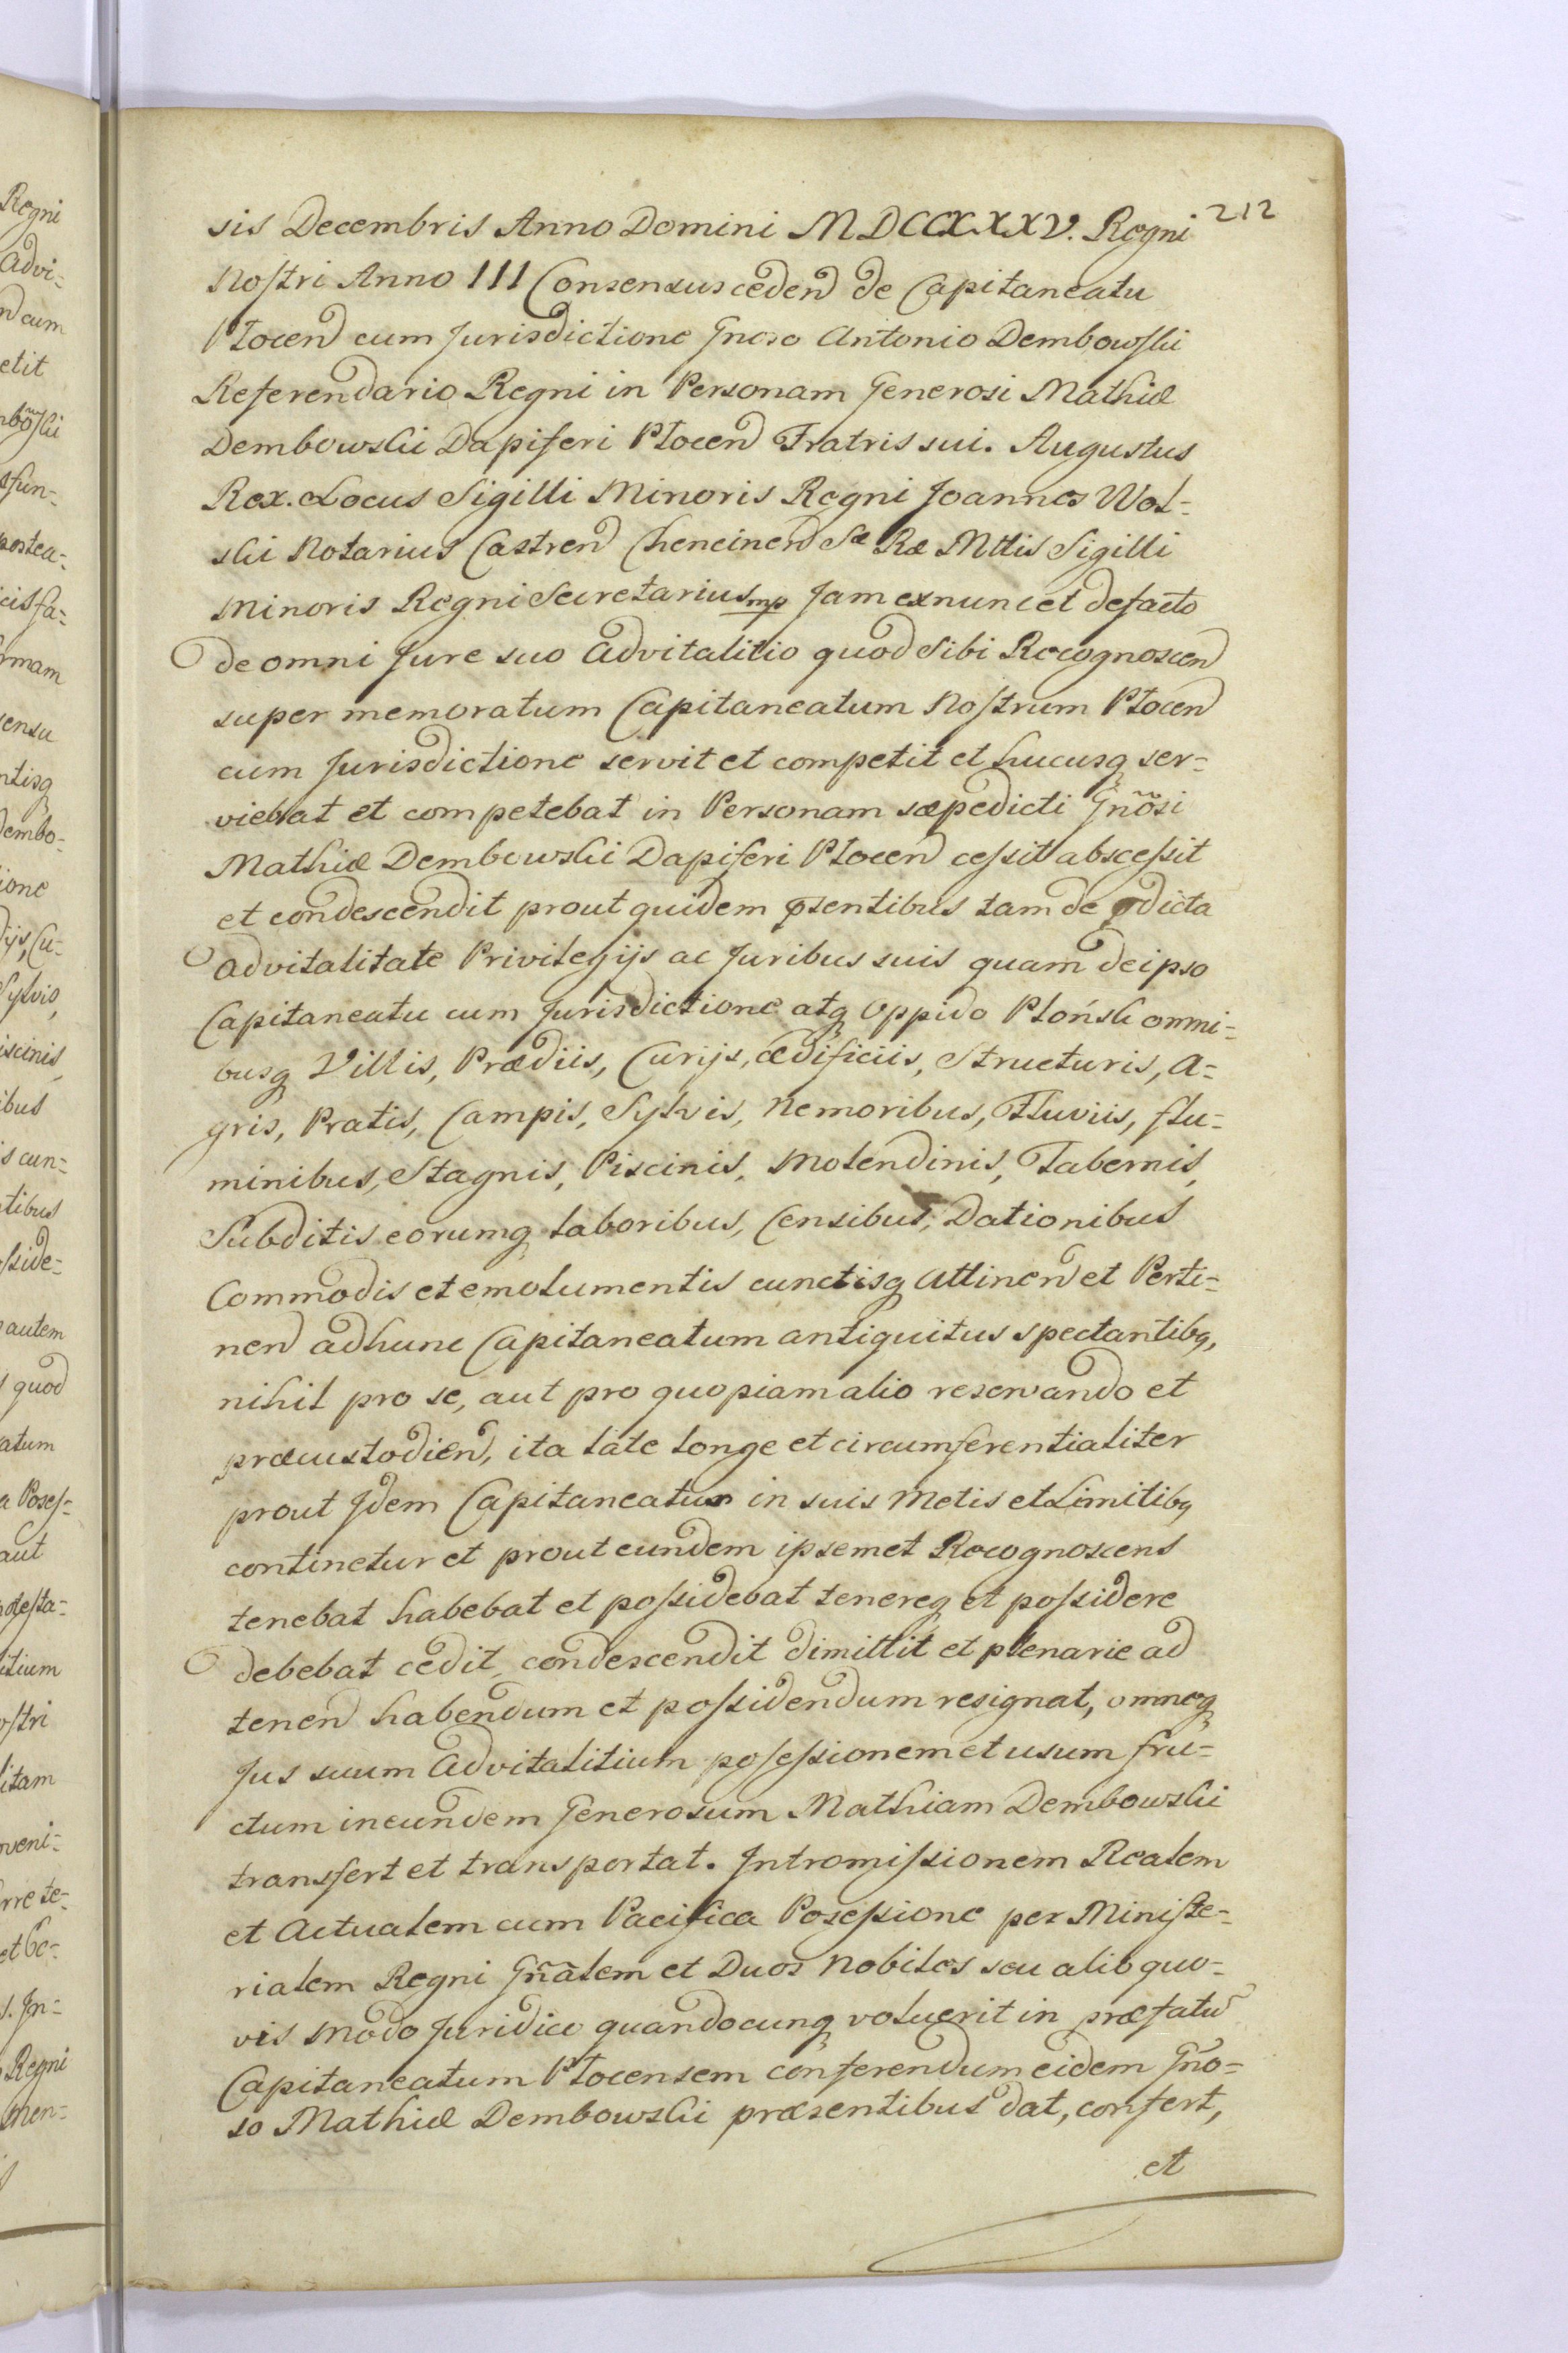 212
sis Decembris Anno Domini MDCCXXXV. Regni
Nostri Anno III Consensus cedend de Capitaneatu
Płocen cum Jurisdictione Gnoso Antonio Dembowski
Referendario Regni in Personam Generosi Mathiæ
Dembowski Dapiferi Płocen Fratris sui. Augustus
Rex. Locus Sigilli Minoris Regni Joannes Wol-
ski Notarius Castren Chencinen Sæ Ræ Mttis Sigilli
Minoris Regni Secretarius mp Jam ex nunc et defacto
de omni Jure suo advitalitio quod Sibi Recognoscen
super memoratum Capitaneatum Nostrum Płocen
cum Jurisdictione servit et competit et hucusq ser-
viebat et competebat in Personam sæpedicti Gnõsi
Mathiæ Dembowski Dapiferi Płocen cessit abscessit
et condescendit prout quidem pṡentibus tam de pdicta
advitalitate Privilegijs ac Juribus suis quam de ipso
Capitaneatu cum Jurisdictione atq Oppido Płońsk omni-
busq Villis, Prædiis, Curijs, ædificiis, Structuris, A-
gris, Pratis, Campis, Sylvis, Nemoribus, Fluviis, flu-
minibus, Stagnis, Piscinis, Molendinis, Tabernis,
Subditis eorumq laboribus, Censibus, Dationibus
Commodis et emolumentis cunctisq Attinen et Perti-
nen ad hunc Capitaneatum antiquitus spectantibq,
nihil pro se, aut pro quopiam alio reservando et
præcustodien, ita late longe et circumferentialiter
prout Idem Capitaneatus in suis Metis et Limitibq
continetur et prout eundem ipsemet Recognoscens
tenebat habebat et possidebat tenereq et possidere
debebat cedit, condescendit dimittit et plenarie ad
tenen habendum et possidendum resignat, omneq
Jus suum Advitalitium posessionem et usum fru-
ctum in eundem Generosum Mathiam Dembowski
transfert et transportat. Intromissionem Realem
et Actualem cum Pacifica Posessione per Ministe-
rialem Regni Gñalem et Duos Nobiles seu alio quo-
vis modo Juridico quandocunq voluerit in præfatũ
Capitaneatum Płocensem conferendum eidem Gño-
so Mathiæ Dembowski præsentibus dat, confert,
et